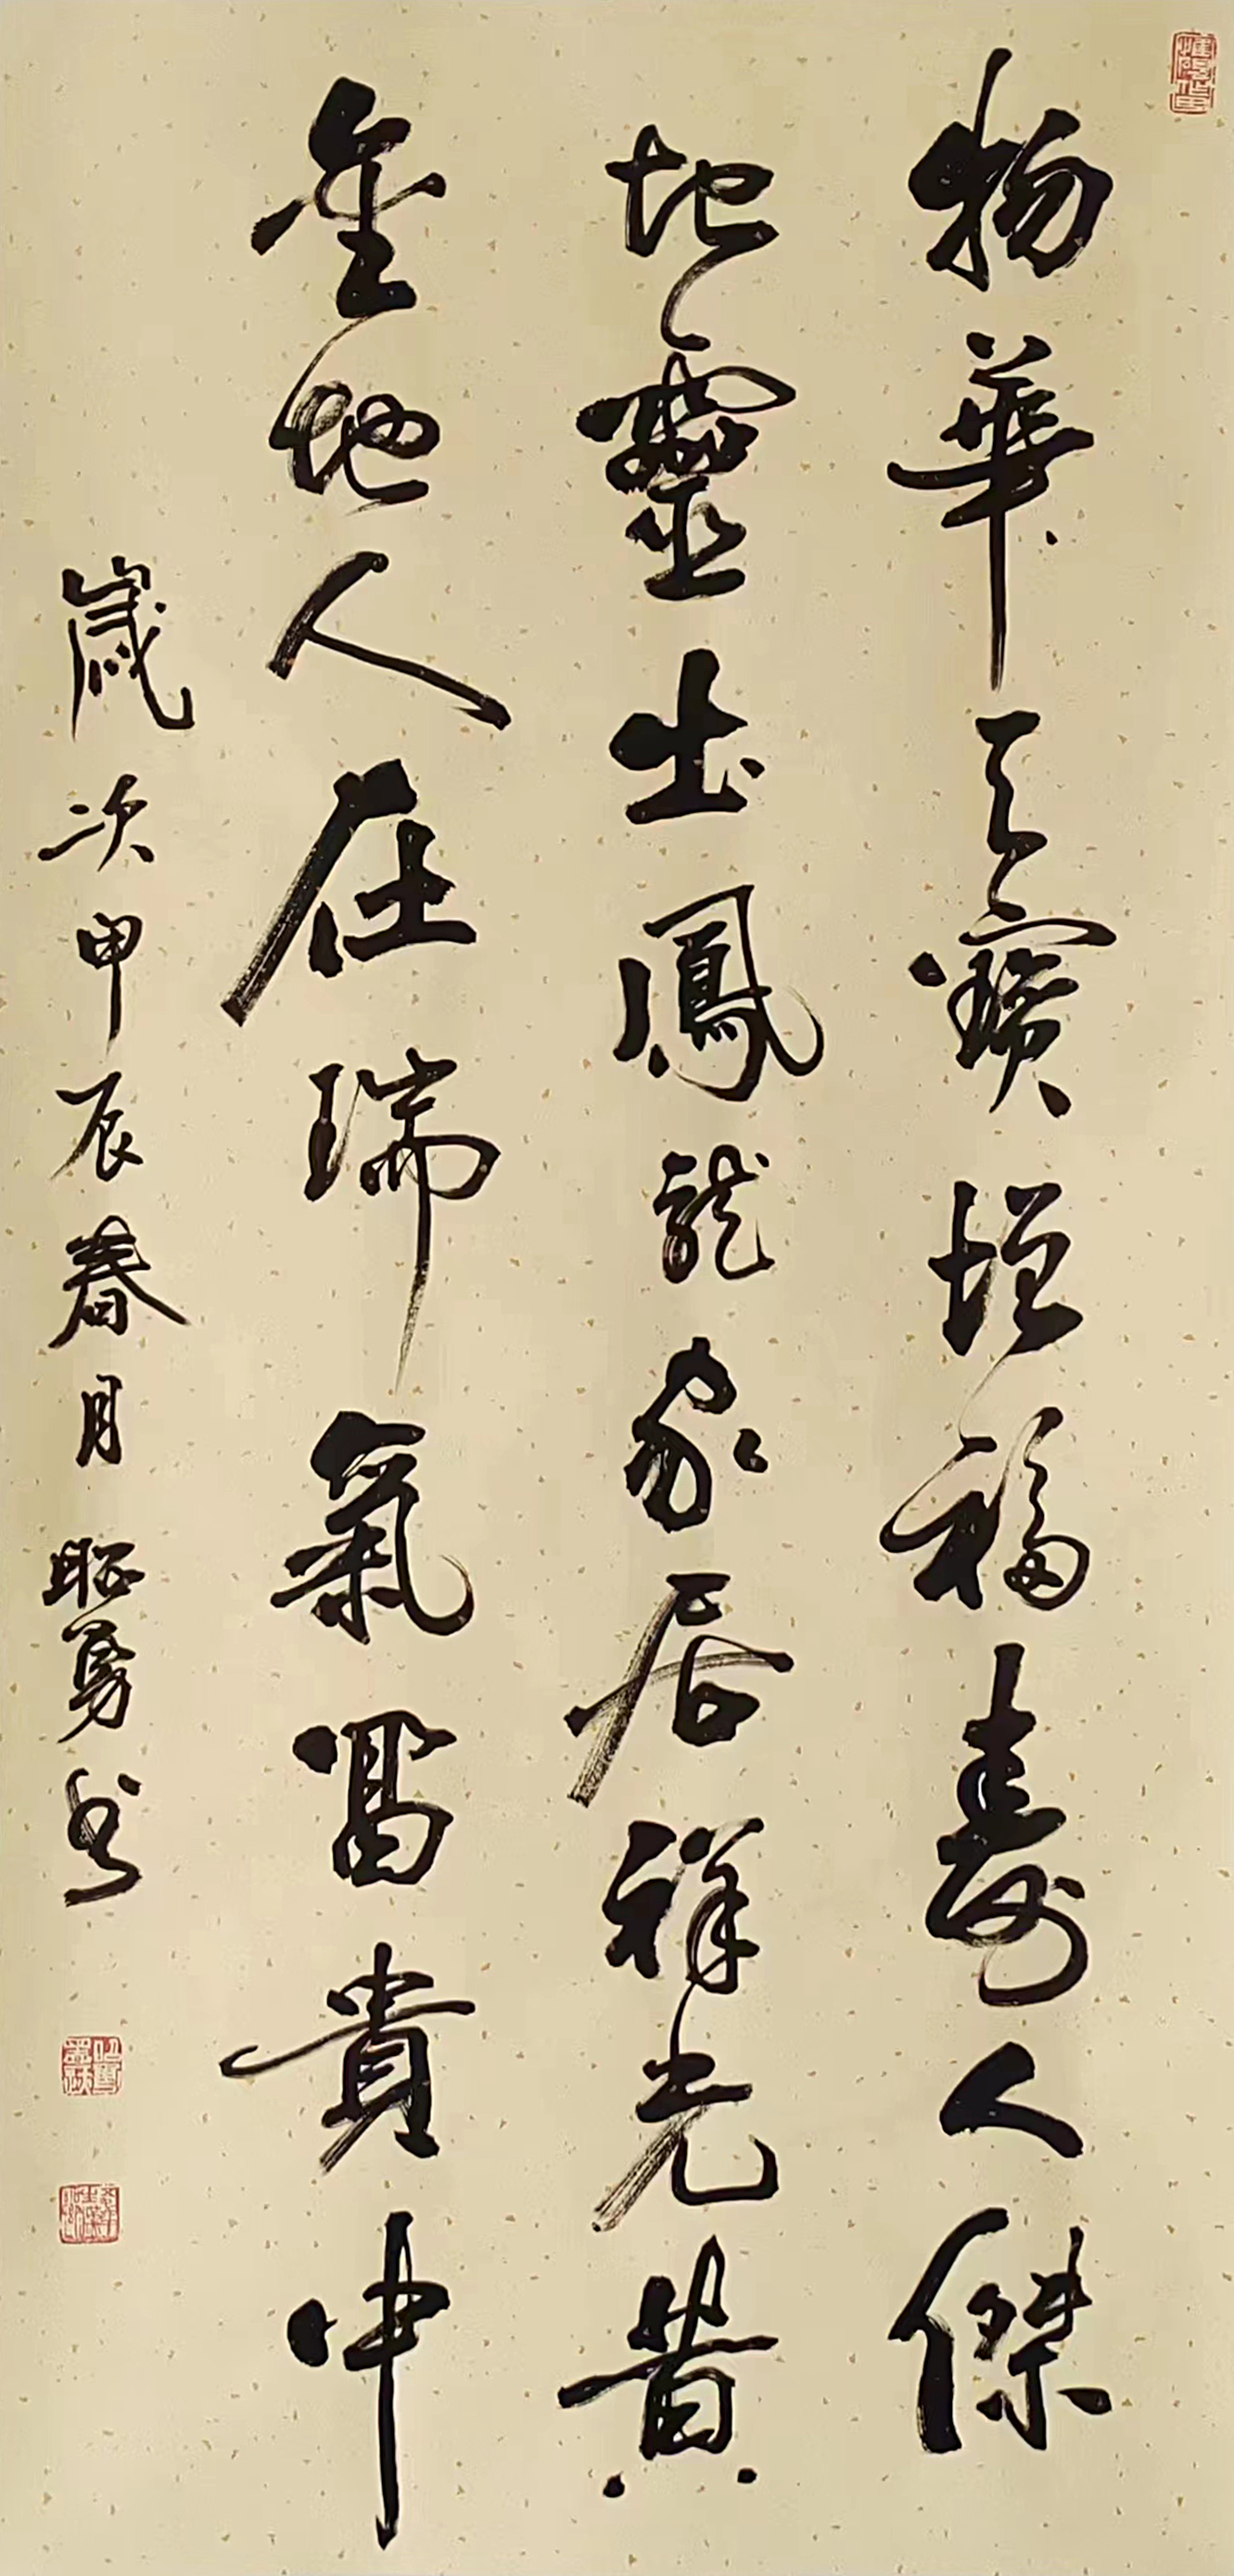 物華天寶增福壽人傑
地靈出鳳龍家居祥光黃
金地人在瑞氣富貴中
歲次甲辰春月昭勇書